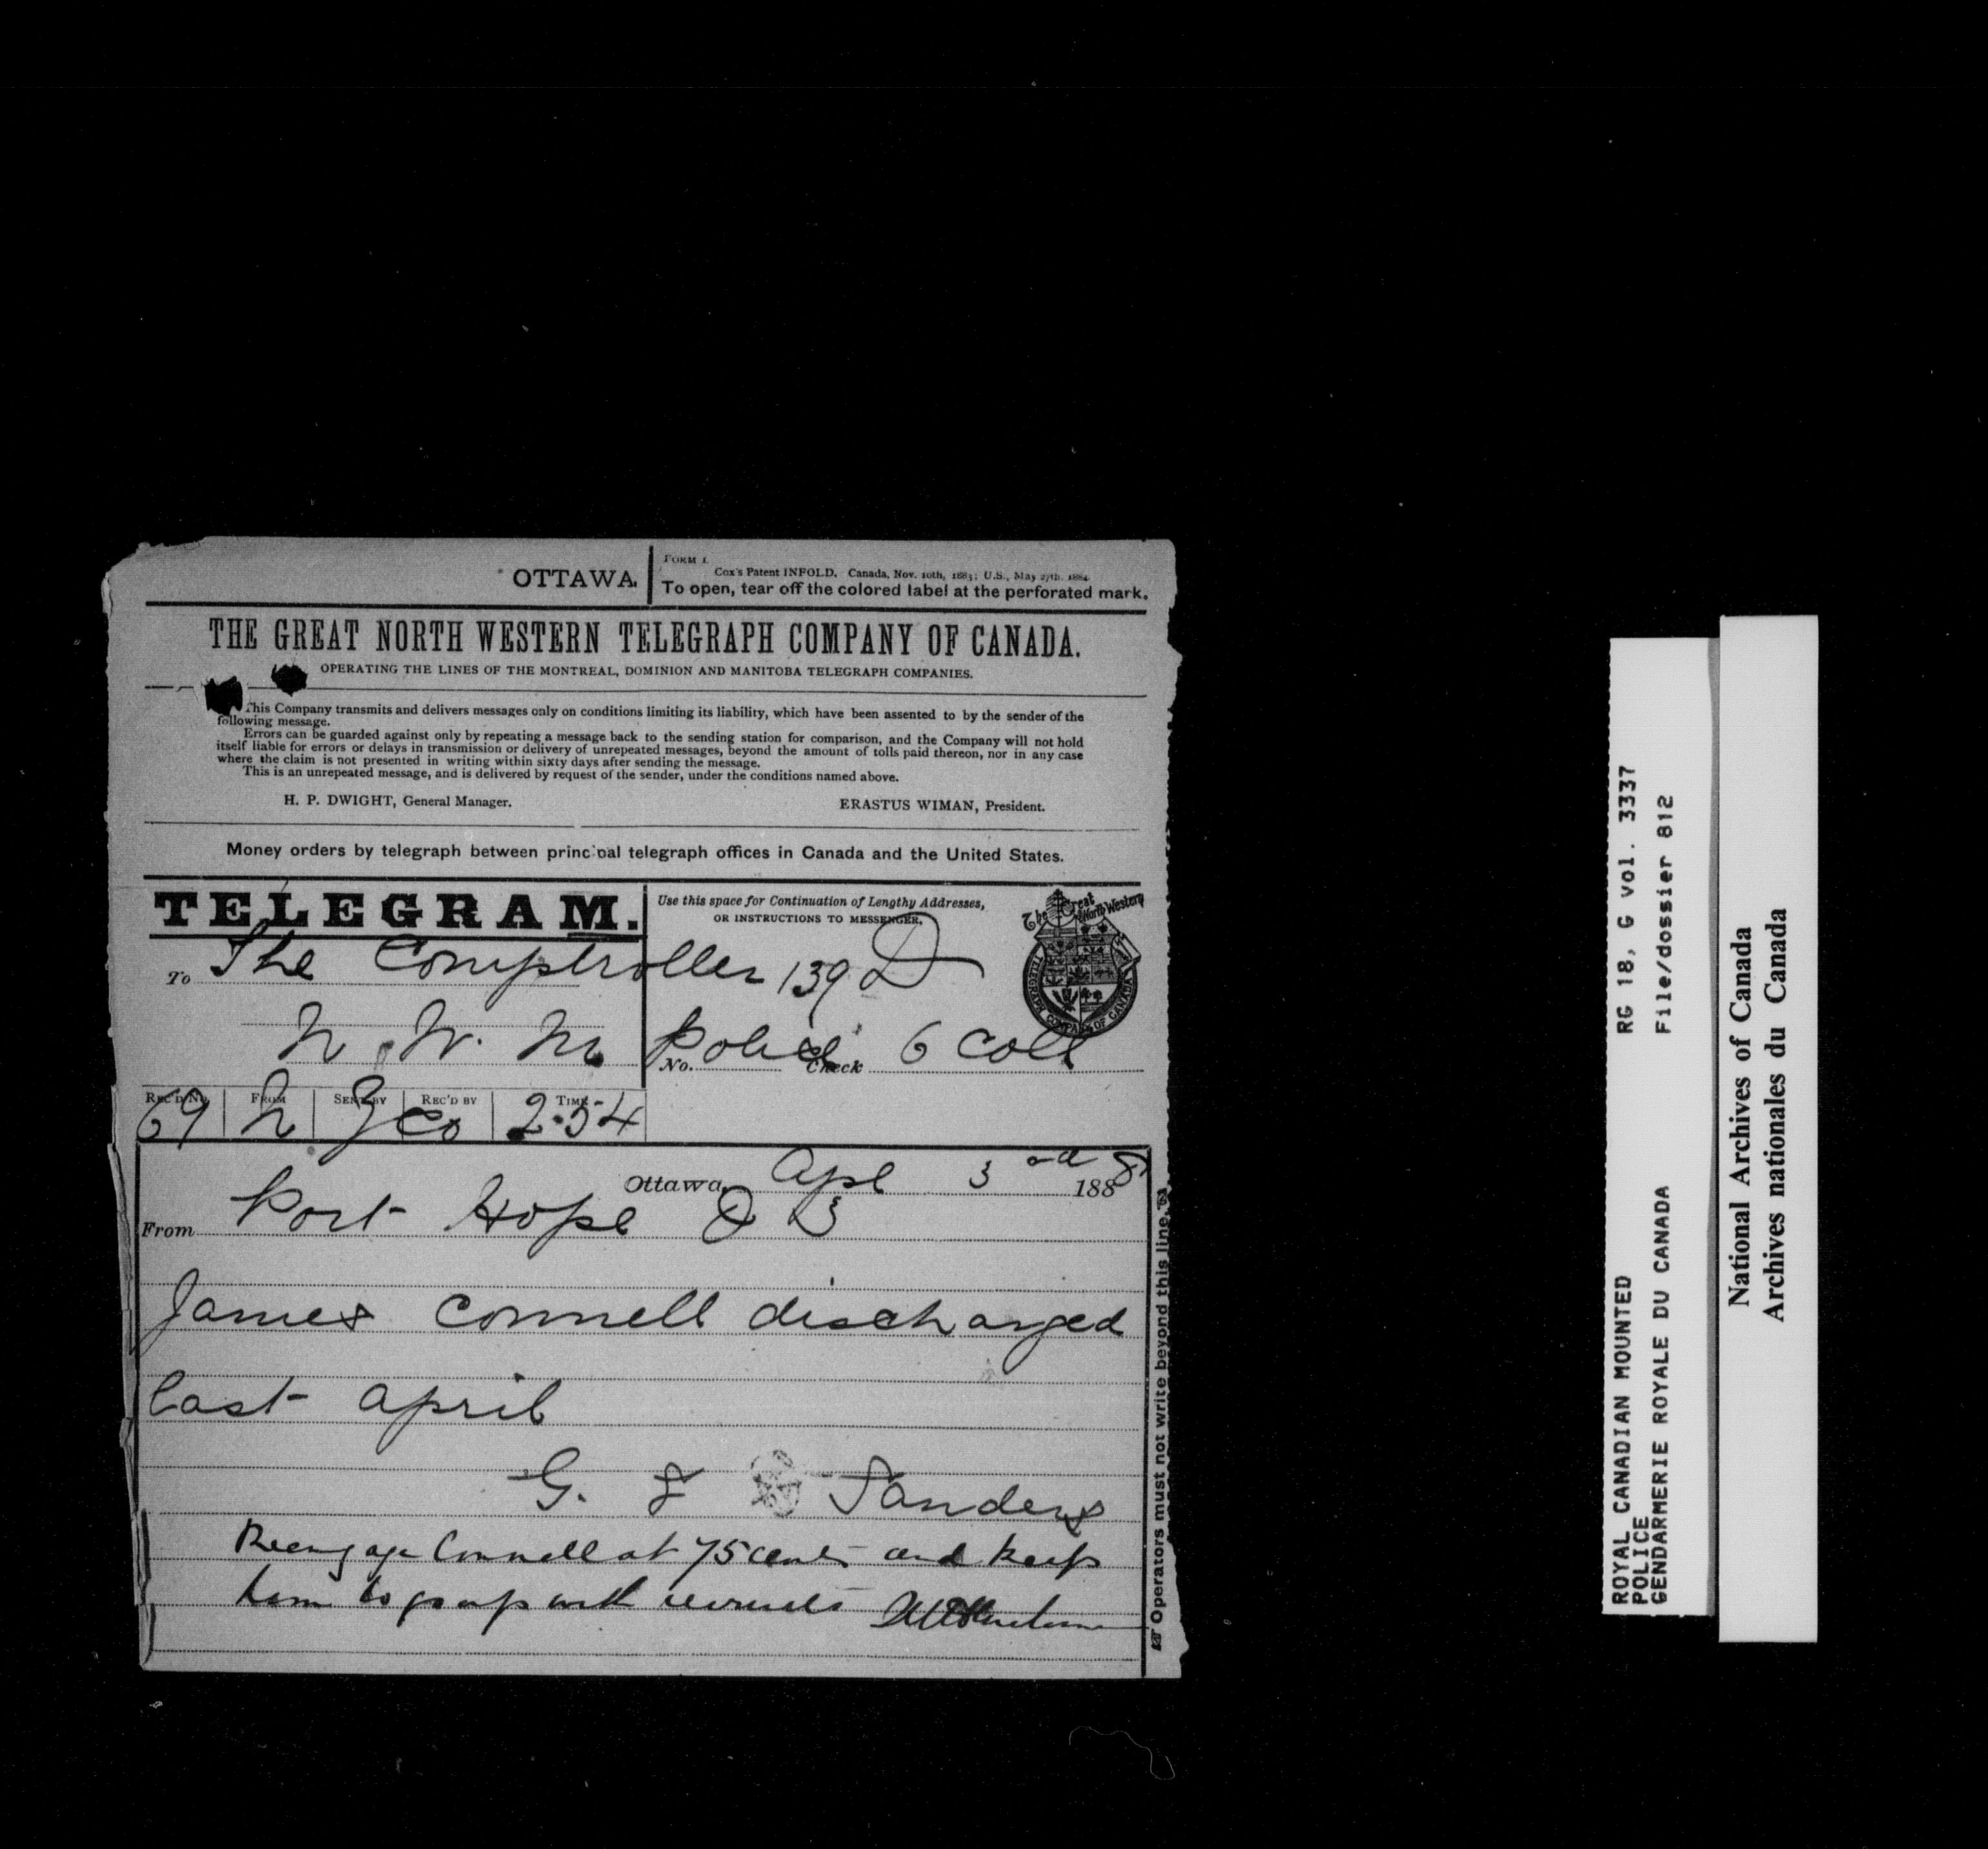 OTTAWA.
FORM 1.
Cox's Patent INFOLD. Canada, Nov. 10th, 1883; U.S., May 27th, 1884.
To open, tear off the colored label at the perforated mark.
THE GREAT NORTH WESTERN TELEGRAPH COMPANY OF CANADA.
OPERATING THE LINES OF THE MONTREAL, DOMINION AND MANITOBA TELEGRAPH COMPANIES.
This Company transmits and delivers messages only on conditions limiting its liability, which have been assented to by the sender of the
following message.
Errors can be guarded against only by repeating a message back to the sending station for comparison, and the Company will not hold
itself liable for errors or delays in transmission or delivery of unrepeated messages, beyond the amount of tolls paid thereon, nor in any case
where the claim is not presented in writing within sixty days after sending the message.
This is an unrepeated message, and is delivered by request of the sender, under the conditions named above.
H. P. DWIGHT, General Manager. ERASTUS WIMAN, President.
Money orders by telegraph between principal telegraph offices in Canada and the United States.
TELEGRAM.
Use this space for Continuation of Lengthy Addresses,
OR INSTRUCTIONS TO MESSENGER.
The Great North Western
TELEGRAPH COMPANY OF CANADA
To The Comptroller 139 D
N. W. M Police
No. Check 6 Coll
REC'D No. FROM SENT BY REC'D BY TIME
69 N 2.54
Ottawa, Apl 3rd 1888
From Port Hope 3
James Connell discharged
last april
G. Sanders
Reengage Connell at 75 cents and keep
him to go up with recruits
Operators must not write beyond this line.
ROYAL CANADIAN MOUNTED RG 18, G vol. 3337
POLICE
GENDARMERIE ROYALE DU CANADA File/dossier 812
National Archives of Canada
Archives nationales du Canada